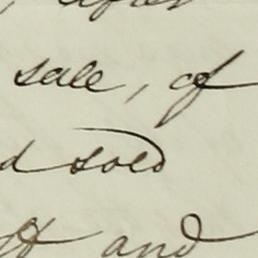 , after
sale, of
d sold
and